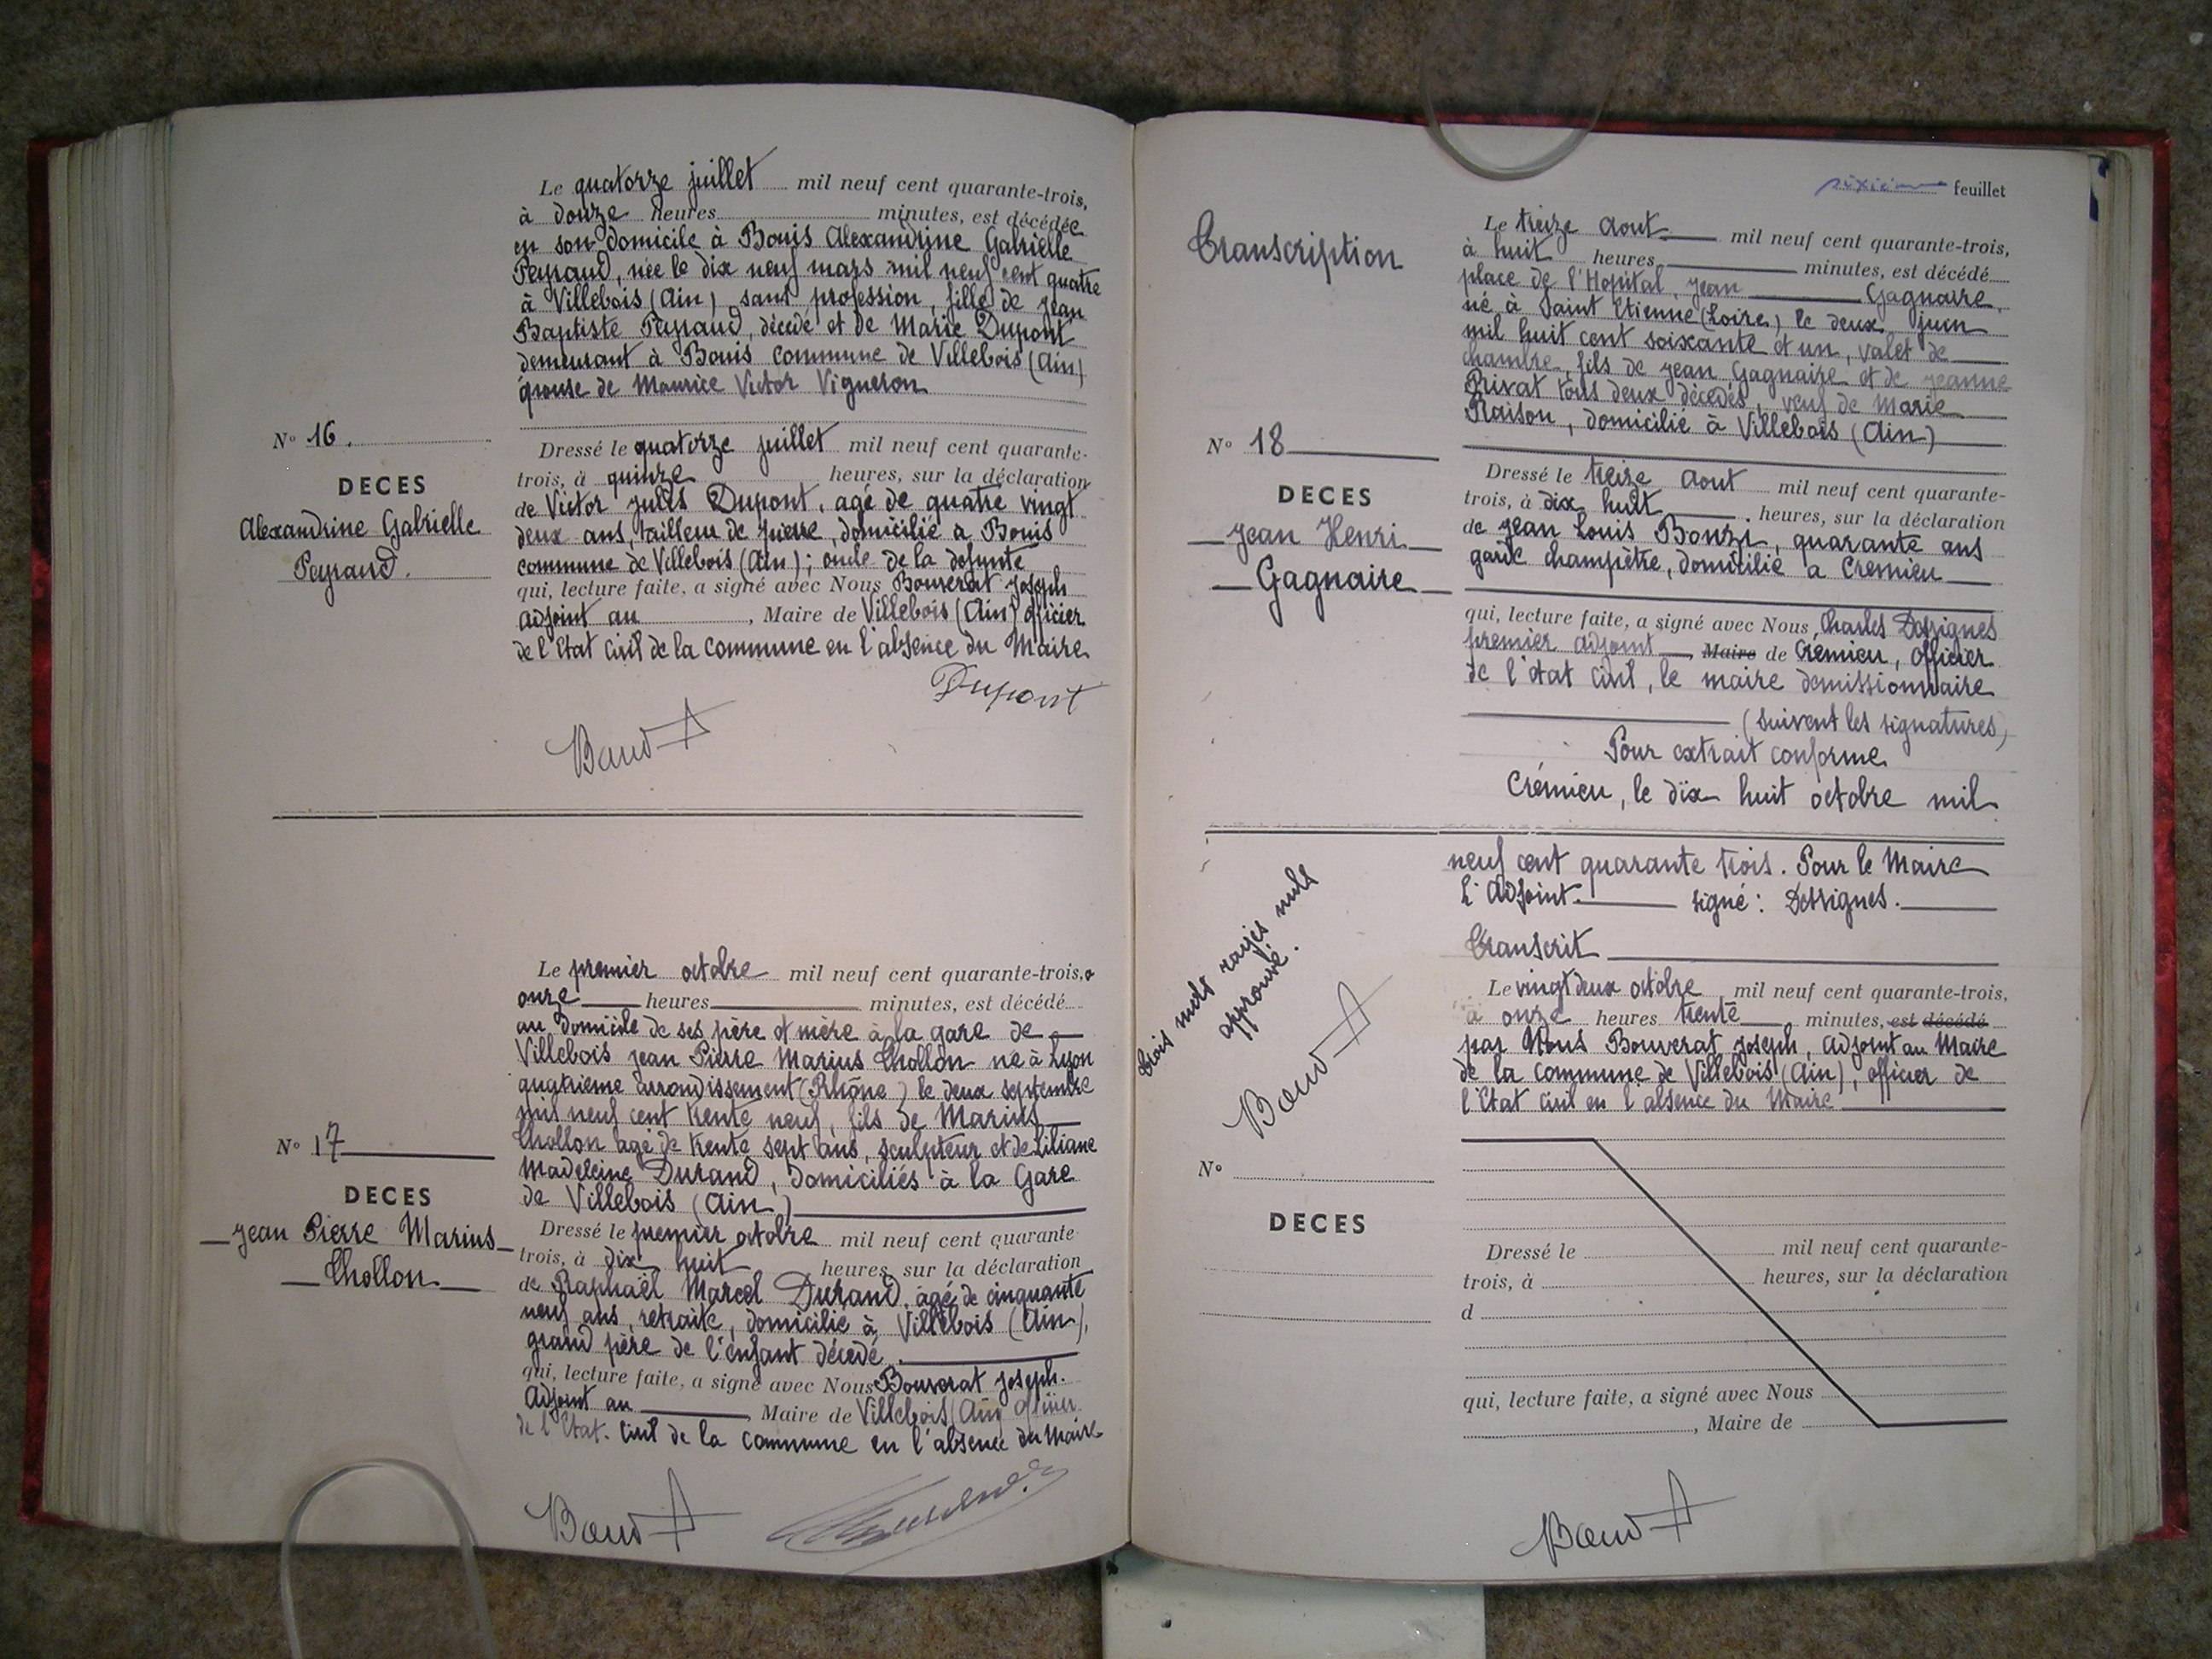 Le quatorze juillet mil neuf cent quarante-trois,
à douze heures minutes, est décédée
en son domicile à Bouis Alexandrine Gabrielle
Peyraud, née le dix neuf mars mil neuf cent quatre
à Villebois (Ain) sans profession, fille de Jean
Baptiste Peyraud, décédé et de Marie Dupont
demeurant à Bouis commune de Villebois (Ain)
épouse de Maurice Victor Vigneron
N° 16.
DECES
Alexandrine Gabrielle
Peyraud.
Dressé le quatorze juillet mil neuf cent quarante-
trois, à quinze heures, sur la déclaration
de Victor Jules Dupont, agé de quatre vingt
deux ans, tailleur de pierre, domicilié à Bouis
commune de Villebois (Ain); oncle de la defunte
qui, lecture faite, a signé avec Nous Bouverat Joseph
adjoint au , Maire de Villebois (Ain) officier
de l'Etat civil de la commune en l'absence du Maire
Dupont
Le premier octobre mil neuf cent quarante-trois, à
onze heures minutes, est décédé
au domicile de ses père et mère à la gare de
Villebois Jean Pierre Marius Chollon né à Lyon
quatrième arrondissement (Rhône) le deux septembre
mil neuf cent trente neuf, fils de Marius
Chollon agé de trente sept ans, sculpteur et de Liliane
Madeleine Durand, domiciliés à la Gare
de Villebois (Ain)
N° 17
DECES
Jean Pierre Marius
Chollon
Dressé le premier octobre mil neuf cent quarante
trois, à dix huit heures, sur la déclaration
de Raphaël Marcel Durand, agé de cinquante
neuf ans, retraité, domicilié à Villebois (Ain),
grand père de l'enfant décédé.
qui, lecture faite, a signé avec Nous Bouverat Joseph.
Adjoint au , Maire de Villebois (Ain) officier
de l'Etat. Civil de la commune en l'absence du Maire
sixième feuillet
Transcription
Le treize Aout mil neuf cent quarante-trois,
à huit heures minutes, est décédé
place de l'Hopital, Jean Gagnaire
né à Saint Etienne (Loire) le deux juin
mil huit cent soixante et un, valet de
chambre, fils de Jean Gagnaire et de Jeanne
Privat tous deux décédés, veuf de Marie
Raison, domicilié à Villebois (Ain)
N° 18
DECES
Jean Henri
Gagnaire
Dressé le treize Aout mil neuf cent quarante-
trois, à dix huit heures, sur la déclaration
de Jean Louis Bonzi, quarante ans
garde champêtre, domicilié à Cremieu
qui, lecture faite, a signé avec Nous, Charles Dessignes
premier adjoint, Maire de Cremieu, officier
de l'état civil, le maire demissionnaire
(suivent les signatures)
Pour extrait conforme
Crémieu, le dix huit octobre mil
neuf cent quarante trois. Pour le Maire
L'Adjoint. signé : Dessignes.
Transcrit
Le vingt deux octobre mil neuf cent quarante-trois,
à onze heures trente minutes, est décédé
par Nous Bouverat Joseph, adjoint au Maire
de la commune de Villebois (Ain), officier de
l'Etat civil en l'absence du Maire
trois mots rayés nuls
approuvé.
N°
DECES
Dressé le mil neuf cent quarante-
trois, à heures, sur la déclaration
d
qui, lecture faite, a signé avec Nous
, Maire de